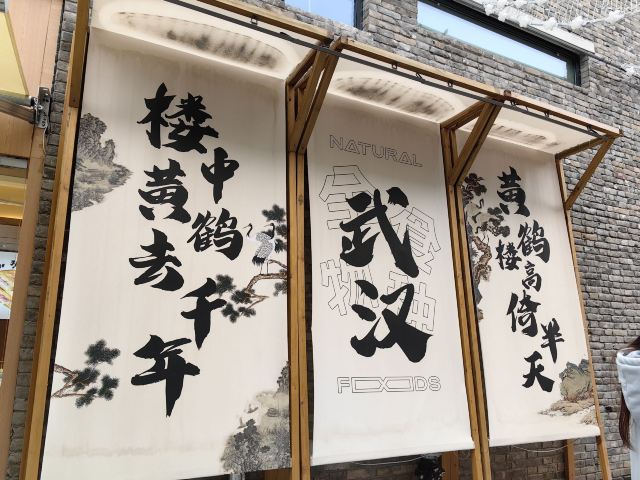 楼中黄鹤去千年
NATURAL
全食物种
武汉
FOODS
黄鹤楼高倚半天